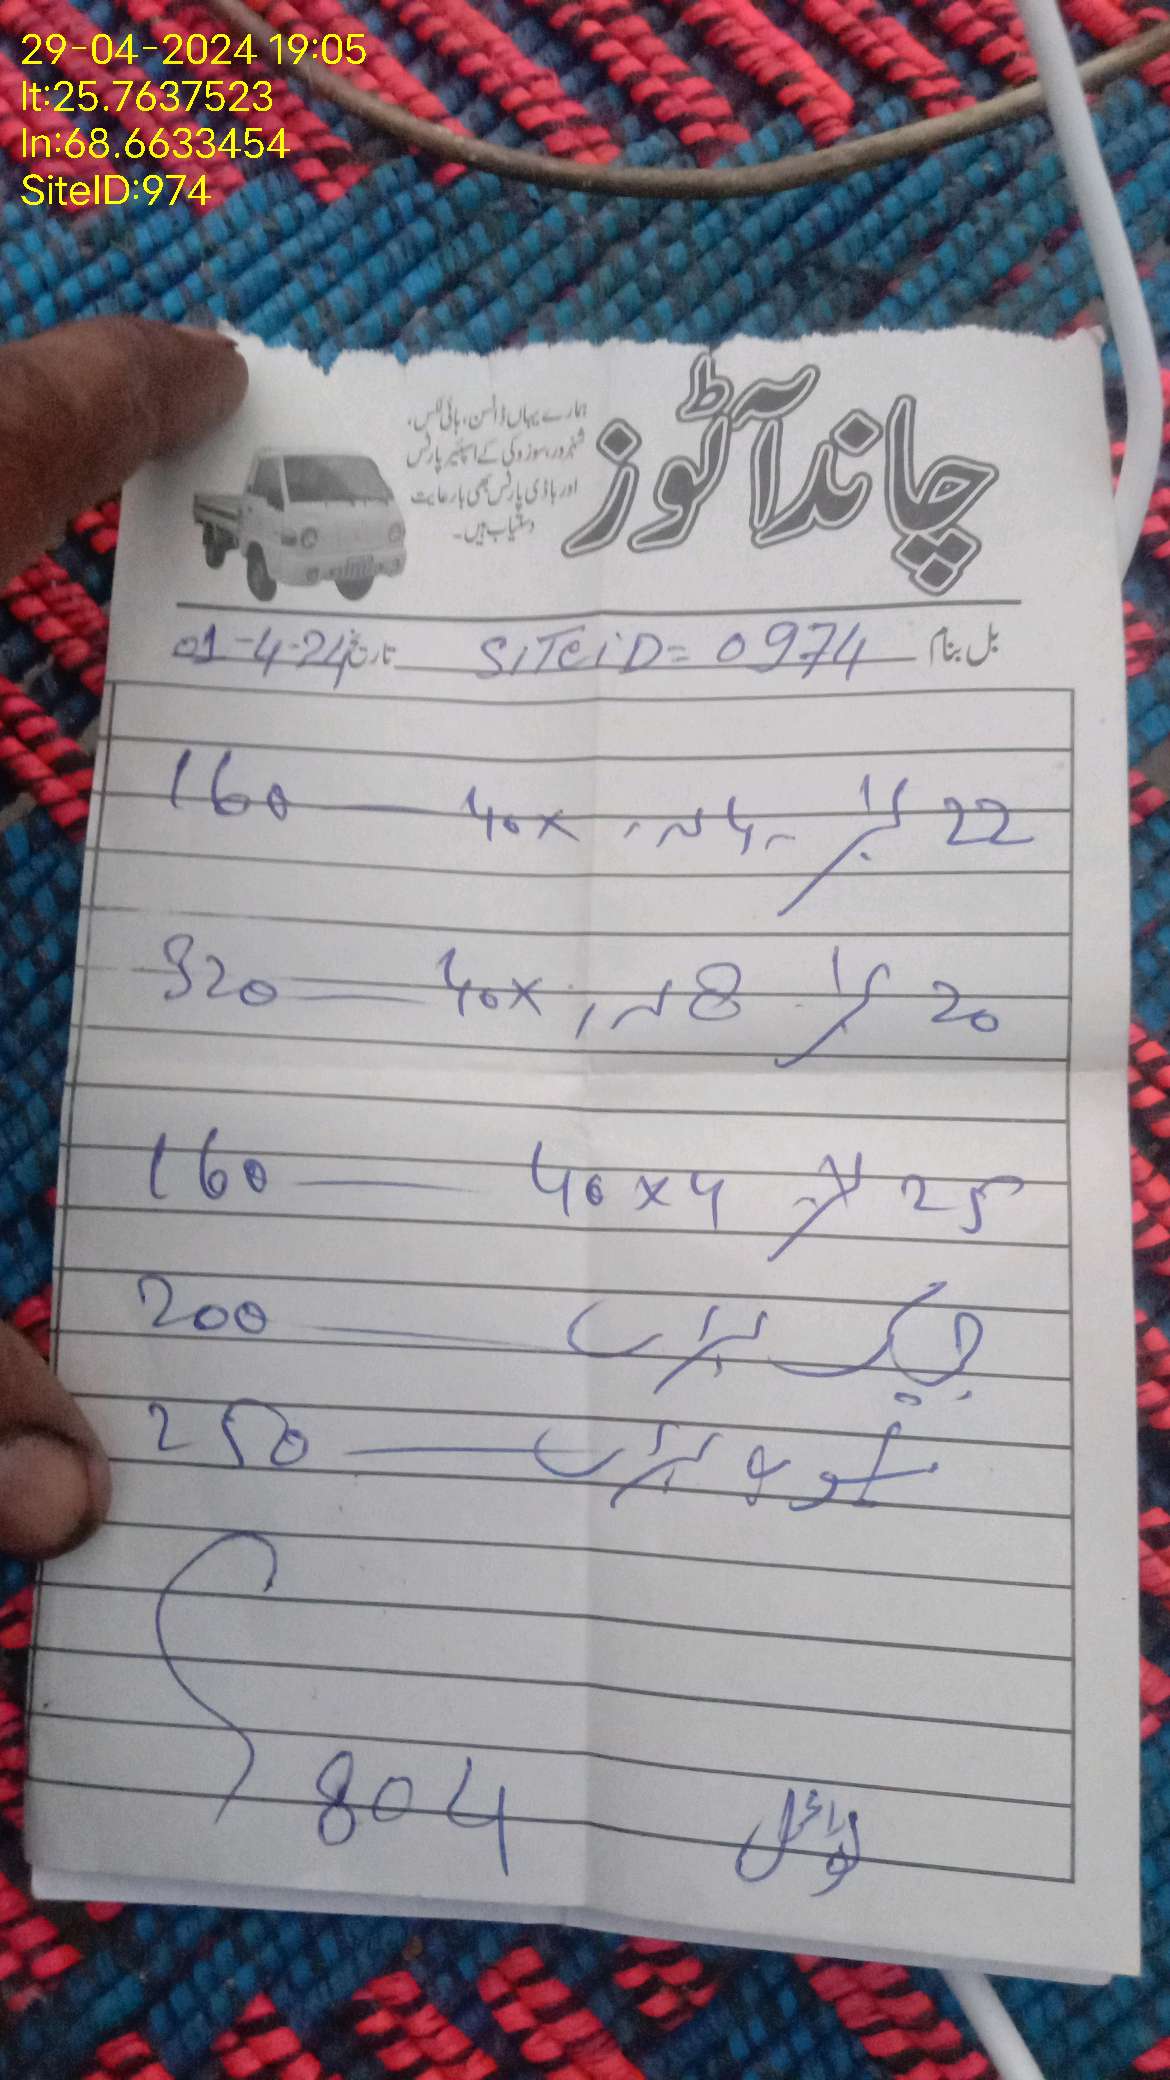 29-04-2024 19:05
lt:25.7637523
ln:68.6633454
SiteID:974
چاند آٹوز
ہمارے یہاں ڈاٹسن، ہائی لکس،
شہزور، سوزوکی کے اسپئیر پارٹس
اور باڈی پارٹس بھی بارعایت
دستیاب ہیں۔
بل بنام SiTeiD=0974 تاریخ 01-4-24
22 4 40x 160
20 8 40x 320
25 40x4 160
200
250
804